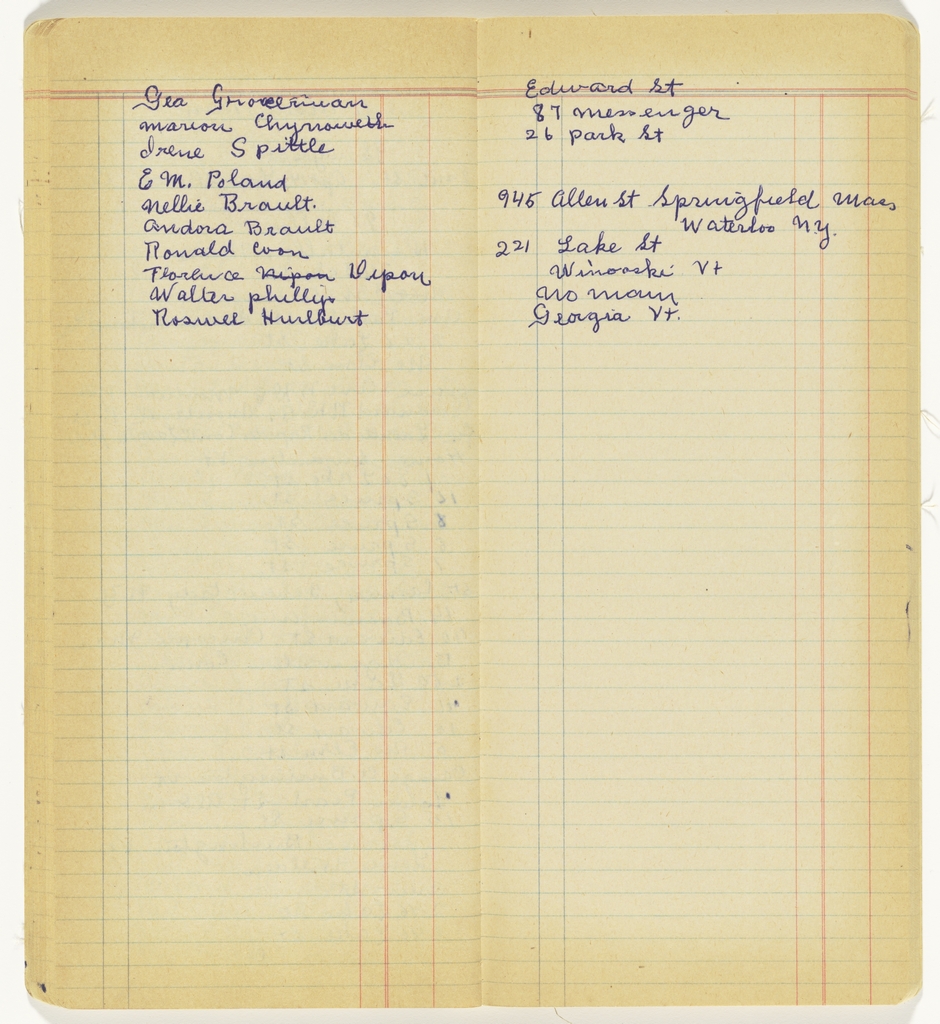 Geo Grooverman
Marion Chynoweth
Irene Spittle
E M. Poland
Nellie Brault.
Andora Brault
Ronald Coon
Florence Dupon
Walter Phillips
Roswel Hurlburt
Edward St
87 Messenger
26 Park St
945 Allen St Springfield Mass
Waterloo N.Y.
221 Lake St
Winooski Vt
No Main
Georgia Vt.